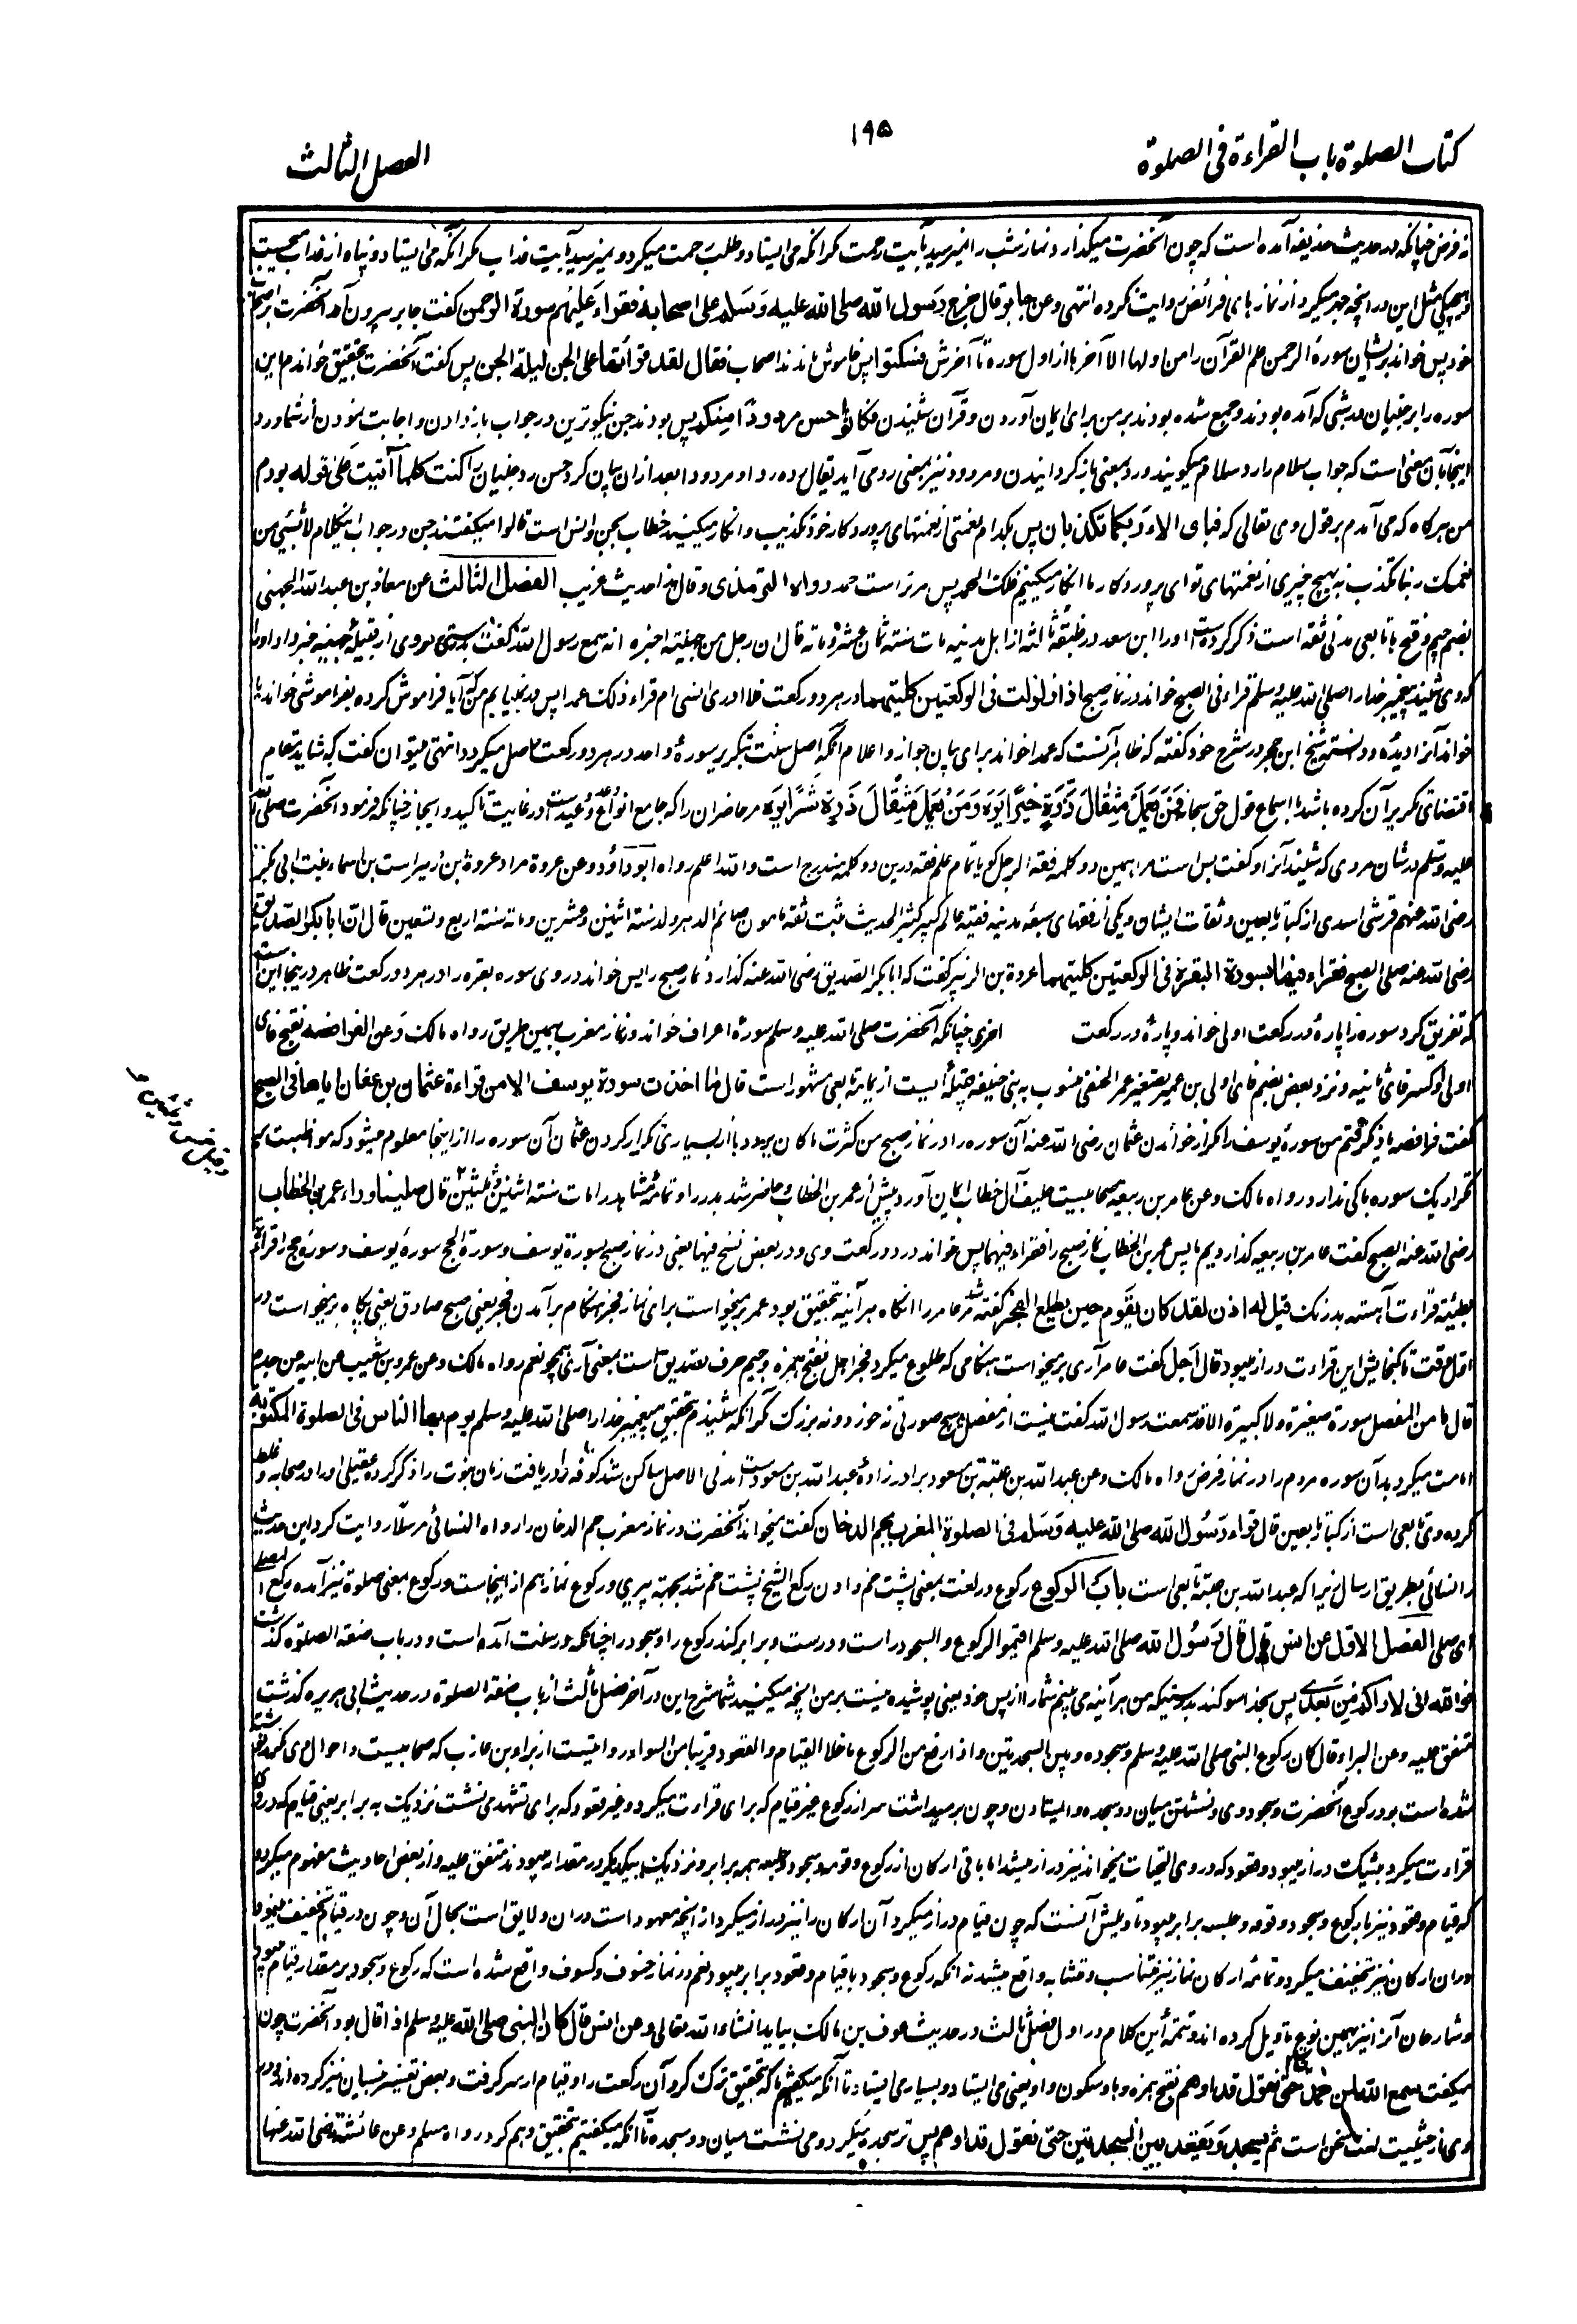 كتاب الصلوة باب القراءة فى الصلوة
١٩٥
الفصل الثالث
نه فرض چنانكه در حديث حذيفه آمده است كه چون آنحضرت ميگذارد نماز شب را نميرسيد بآيت رحمت مگر آنكه مى ايستاد و طلب رحمت ميكرد و نميرسيد بآيت عذاب مگر آنكه مى ايستاد و پناه از عذاب
و هيچ يكى مثل اين در آنچه جهر ميكرد از نماز هاى فرائض روايت نكرده انتهى وعن جابر قال خرج رسول الله صلى الله عليه وسلم على اصحابه فقراء عليهم سورة الرحمن گفت جابر بيرون آمد آنحضرت بر اصحاب
خود پس خواند بر ايشان سورهٔ الرحمن علم القرآن را من اولها الى آخرها از اول سوره تا آخرش فسكتوا پس خاموش ماندند اصحاب فقال لقد قرأتها على الجن ليلة الجن پس گفت آنحضرت بتحقيق خواندم اين
سوره را بر جنيان در شبى كه آمده بودند و جمع شده بودند بر من براى ايمان آوردن و قرآن شنيدن فكانوا احسن مردودا منكم پس بودند جن نيكوترين در جواب باز دادن و اجابت نمودن از شما ورد
اينجا بآن معنى است كه جواب سلام را رد سلام ميگويند ورد بمعنى باز گردانيدن و مردود نيز بمعنى رد مى آيد يقال رده ردا و مردودا بعد ازان بيان كرد حسن رد جنيان را كنت كلما أتيت على قوله بودم
من هرگاه كه مى آمدم بر قول وى تعالى كه فباى الاء ربكما تكذبان پس بكدام نعمتى از نعمتهاى پروردگار خود تكذيب و انكار ميكنيد خطاب بجن و انس است قالوا ميگفتند جن در جواب اين كلام لا بشيئ من
نعمك ربنا نكذب نه بهيچ چيزى از نعمتهاى تو اى پروردگار ما انكار ميكنيم فلك الحمد پس مر تراست حمد رواه الترمذى وقال هذا حديث غريب الفصل الثالث عن معاذ بن عبد الله الجهنى
بضم جيم و فتح ها تابعى مدنى ثقه است ذكر كرده است او را ابن سعد در طبقهٔ ثالثه از اهل مدينه مات سنة ثمان عشرة ومائة قال ان رجل من جهينة اخبره انه سمع رسول الله گفت بدرستى مردى از قبيلهٔ جهينه خبر داد او را
كه وى شنيد پيغمبر خدا را صلى الله عليه وسلم قراء فى الصبح خواند در نماز صبح اذا زلزلت فى الركعتين كلتيهما در هر دو ركعت فلا ادرى انسى ام قراء ذلك عمدا پس در نمييابم من كه آيا فراموش كرده بفراموشى خواند يا
خواند آنرا ديده و دانسته شيخ ابن حجر در شرح خود گفته كه ظاهر آنست كه عمدا خواند براى بيان جواز و اعلام آنكه اصل سنت بتكرير سورهٔ واحد در هر دو ركعت حاصل ميگردد انتهى ميتوان گفت كه شايد مقام
اقتضاى تكرير آن كرده باشد با اسماع قول حق سبحانه فمن يعمل مثقال ذرة خيرا يره ومن يعمل مثقال ذرة شرا يره مر حاضران را كه جامع انواع وعد و وعيد است در غايت تاكيد و ايجاز چنانكه فرمود آنحضرت صلى الله
عليه وسلم در شان مردى كه شنيد آنرا و گفت بس است مرا همين دو كلمه فقه الرجل گويا تمام علم فقه درين دو كلمه مندرج است والله اعلم رواه ابو داؤد وعن عروة مراد عروة ابن زبير است بن اسماء بنت ابى بكر
رضى الله عنهم قرشى اسدى از كبار تابعين و ثقات ايشان و يكى از فقهاى سبعهٔ مدينه فقيه عالم كبير كثير الحديث ثبت ثقه مامون صائم الدهر ولد سنة اثنين وعشرين ومات سنة اربع وتسعين قال ان ابا بكر الصديق
رضى الله عنه صلى الصبح فقراء فيهما بسورة البقرة فى الركعتين كلتيهما عروة بن الزبير گفت كه ابا بكر الصديق رضى الله عنه گذارد نماز صبح را پس خواند در وى سوره بقره را در هر دو ركعت ظاهر در اينجا اين است
كه تفريق كرد سوره را پارهٔ در ركعت اولى خواند و پارهٔ در ركعت اخرى چنانكه آنحضرت صلى الله عليه وسلم سورهٔ اعراف خواند در نماز مغرب بهمين طريق رواه مالك وعن الفرافصة بفتح فاى
اولى و كسر فاى ثانيه و نزد بعض بضم فاى اولى بن عمير بتصغير عمر الحنفى منسوب به بنى حنيفه قبيله ايست از يمامه تابعى مشهور است قال ما اخذت سورة يوسف الا من قراءة عثمان بن عفان اياها فى الصبح
گفت فرافصه ياد نگرفتم من سورهٔ يوسف را مگر از خواندن عثمان رضى الله عنه آن سوره را در نماز صبح من كثرت ما كان يرددها از بسيارى تكرار كردن عثمان آن سوره را از اينجا معلوم ميشود كه مواظبت بر
تكرار يك سوره باكى ندارد رواه مالك وعن عامر بن ربيعه صحابيست حليف آل خطاب ايمان آورد پيش از عمر بن الخطاب و حاضر شد بدر را و تمامهٔ مشاهد را مات سنة اثنين وثلثين قال صلينا وراء عمر بن الخطاب
رضى الله عنه الصبح گفت عامر بن ربيعه گذارديم ما پس عمر بن الخطاب نماز صبح را فقراء فيهما پس خواند در دو ركعت وى و در بعض نسخ فيها يعنى در نماز صبح بسورة يوسف وسورة الحج سورهٔ يوسف و سورهٔ حج را قراءة
بطيئة قراءت آهسته بدرنگ قيل له اذن لقد كان يقوم حين يطلع الفجر گفته شد مر عامر را انگاه هر آئينه بتحقيق بود عمر بر ميخواست براى نماز فجر هنگام بر آمدن فجر يعنى صبح صادق يعنى پگاه بر ميخواست در
اول وقت تا گنجايش اين قراءت دراز ميبود قال اجل گفت عامر آرى بر ميخواست هنگامى كه طلوع ميكرد فجر اجل بفتح همزه و جيم حرف تصديق است بمعنى آرى همچو نعم رواه مالك وعن عمرو بن شعيب عن ابيه عن جده
قال ما من المفصل سورة صغيرة ولا كبيرة الا قد سمعت رسول الله گفت نيست از مفصل هيچ سورتى نه خورد و نه بزرگ مگر آنكه شنيدم بتحقيق پيغمبر خدا را صلى الله عليه وسلم يؤم بها الناس فى الصلوة المكتوبة
امامت ميكرد بدان سوره مردم را در نماز فرض رواه مالك وعن عبد الله بن عتبة بن مسعود برادر زادهٔ عبد الله بن مسعود است مدنى الاصل ساكن شد كوفه را دريافت زمان نبوت را ذكر كرده عقيلى او را در صحابه و غلط
كرده وى تابعى است از كبار تابعين قال قراء رسول الله صلى الله عليه وسلم فى الصلوة المغرب بحم الدخان گفت ميخواند آنحضرت در نماز مغرب حم الدخان را رواه النسائى مرسلا روايت كرد اين حديث
را نسائى بطريق ارسال زيرا كه عبد الله بن عتبه تابعى است باب الركوع ركوع در لغت بمعنى پشت خم دادن ركع الشيخ پشت خم شد بجهت پيرى و ركوع نماز هم از اينجاست و ركوع بمعنى صلوة نيز آمده ركع المصلى
اى صلى الفصل الاول عن انس قال قال رسول الله صلى الله عليه وسلم اقيموا الركوع والسجود راست و درست و برابر كنيد ركوع را و سجود را چنانكه در سنت آمده است و در باب صفة الصلوة گذشت
فوالله انى لاراكم من بعدى پس بخدا سوگند بدرستيكه من هر آئينه مى بينم شمارا از پس خود يعنى پوشيده نيست بر من آنچه ميكنيد شما شرح اين در آخر فصل ثالث از باب صفة الصلوة در حديث ابى هريره گذشت
متفق عليه وعن البراء قال كان ركوع النبى صلى الله عليه وسلم وسجوده وبين السجدتين واذا رفع من الركوع ما خلا القيام والقعود قريبا من السواء روايتست از براء بن عازب كه صحابيست و احوال وى مكرر نوشته
شده است بود ركوع آنحضرت و سجود وى و نشستن ميان دو سجده و ايستادن و چون بر ميداشت سر از ركوع غير قيام كه براى قراءت ميكرد و غير قعود كه براى تشهد مى نشست نزديك به برابر يعنى قيام كه در وى
قراءت ميكرد بيشك دراز ميبود و قعود كه در وى التحيات ميخواند نيز دراز ميشد اما باقى اركان از ركوع و قومه و سجود و جلسه همه برابر و نزديك بيكديگر در مقدار ميبودند متفق عليه و از بعض احاديث مفهوم ميگردد
كه قيام و قعود نيز با ركوع و سجود و قومه و جلسه برابر ميبود تاويلش آنست كه چون قيام دراز ميكرد آن اركان را نيز دراز ميكرد از آنچه معهود است دران و لايق است بحال آن و چون در قيام تخفيف مينمود
دران اركان نيز تخفيف ميكرد و تمامهٔ اركان نماز نيز متناسب و متشابه واقع ميشد نه آنكه ركوع و سجود با قيام و قعود برابر ميبود نعم در نماز خسوف و كسوف واقع شده است كه ركوع و سجود بر مقدار قيام ميبود
و شارحان آنرا نيز بهمين نوع تاويل كرده اند و تتمهٔ اين كلام در اول فصل ثالث در حديث عوف بن مالك بيايد انشاء الله تعالى وعن انس قال كان النبى صلى الله عليه وسلم اذا قال بود آنحضرت چون
ميگفت سمع الله لمن حمده قام حتى نقول قد اوهم بفتح همزه و ها و سكون واو يعنى مى ايستاد و بسيارى ايستاد تا آنكه ميگفتيم ما كه بتحقيق ترك كرد آن ركعت را و قيام از سر گرفت و بعض تفسير بنسيان نيز كرده اند و در
وى از حيثيت لغت سخن است ثم يسجد ويقعد بين السجدتين حتى نقول قد اوهم پس تر سجده ميكرد و مى نشست ميان دو سجده تا آنكه ميگفتيم بتحقيق وهم كرد رواه مسلم وعن عائشة رضى الله عنها